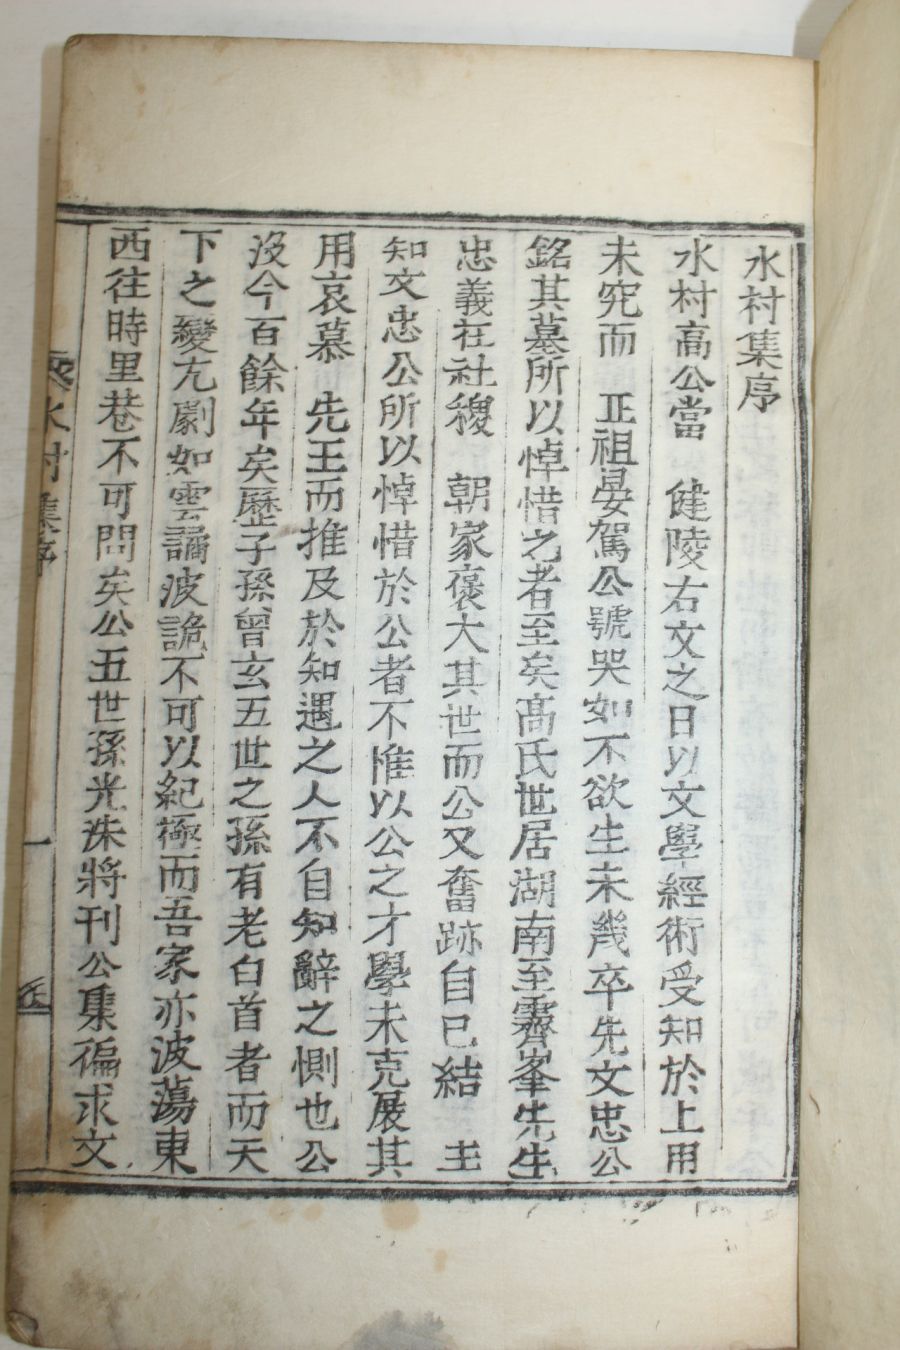 水村集序
水村高公當 健陵右文之日以文學經術受知於上用
未究而 正祖晏駕公號哭如不欲生未幾卒先文忠公
銘其墓所以悼惜之者至矣高氏世居湖南至霽峯先生
忠義在社稷 朝家褒大其世而公又奮跡自己結 主
知文忠公所以悼惜於公者不惟以公之才學未克展其
用哀慕 先王而推及於知遇之人不自知辭之惻也公
沒今百餘年矣歷子孫曾玄五世之孫有老白首者而天
下之變尤劇如雲譎波詭不可以紀極而吾家亦波蕩東
西往時里巷不可問矣公五世孫光洙將刊公集徧求文
水村集序 一